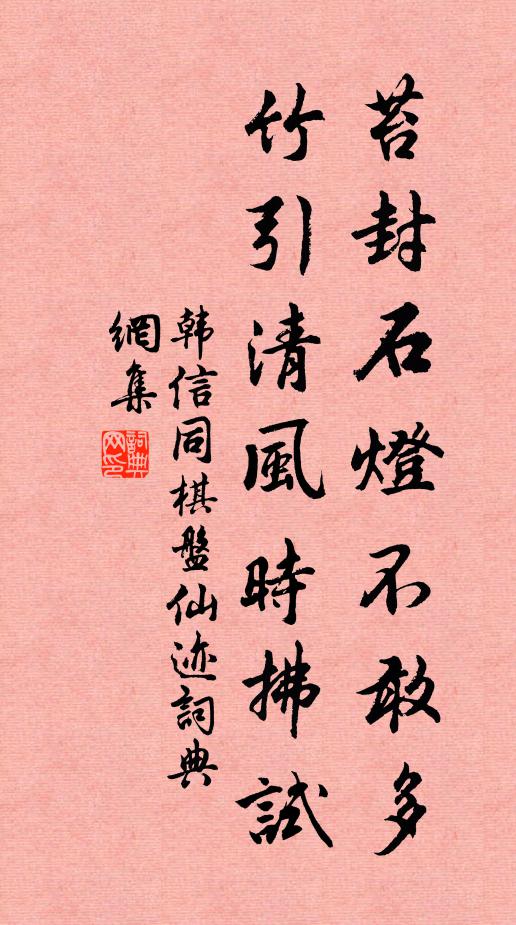 苔封石燈不敢多
竹引清風時拂試
韩信同棋盤仙迹詞典
網集
詞典
网印